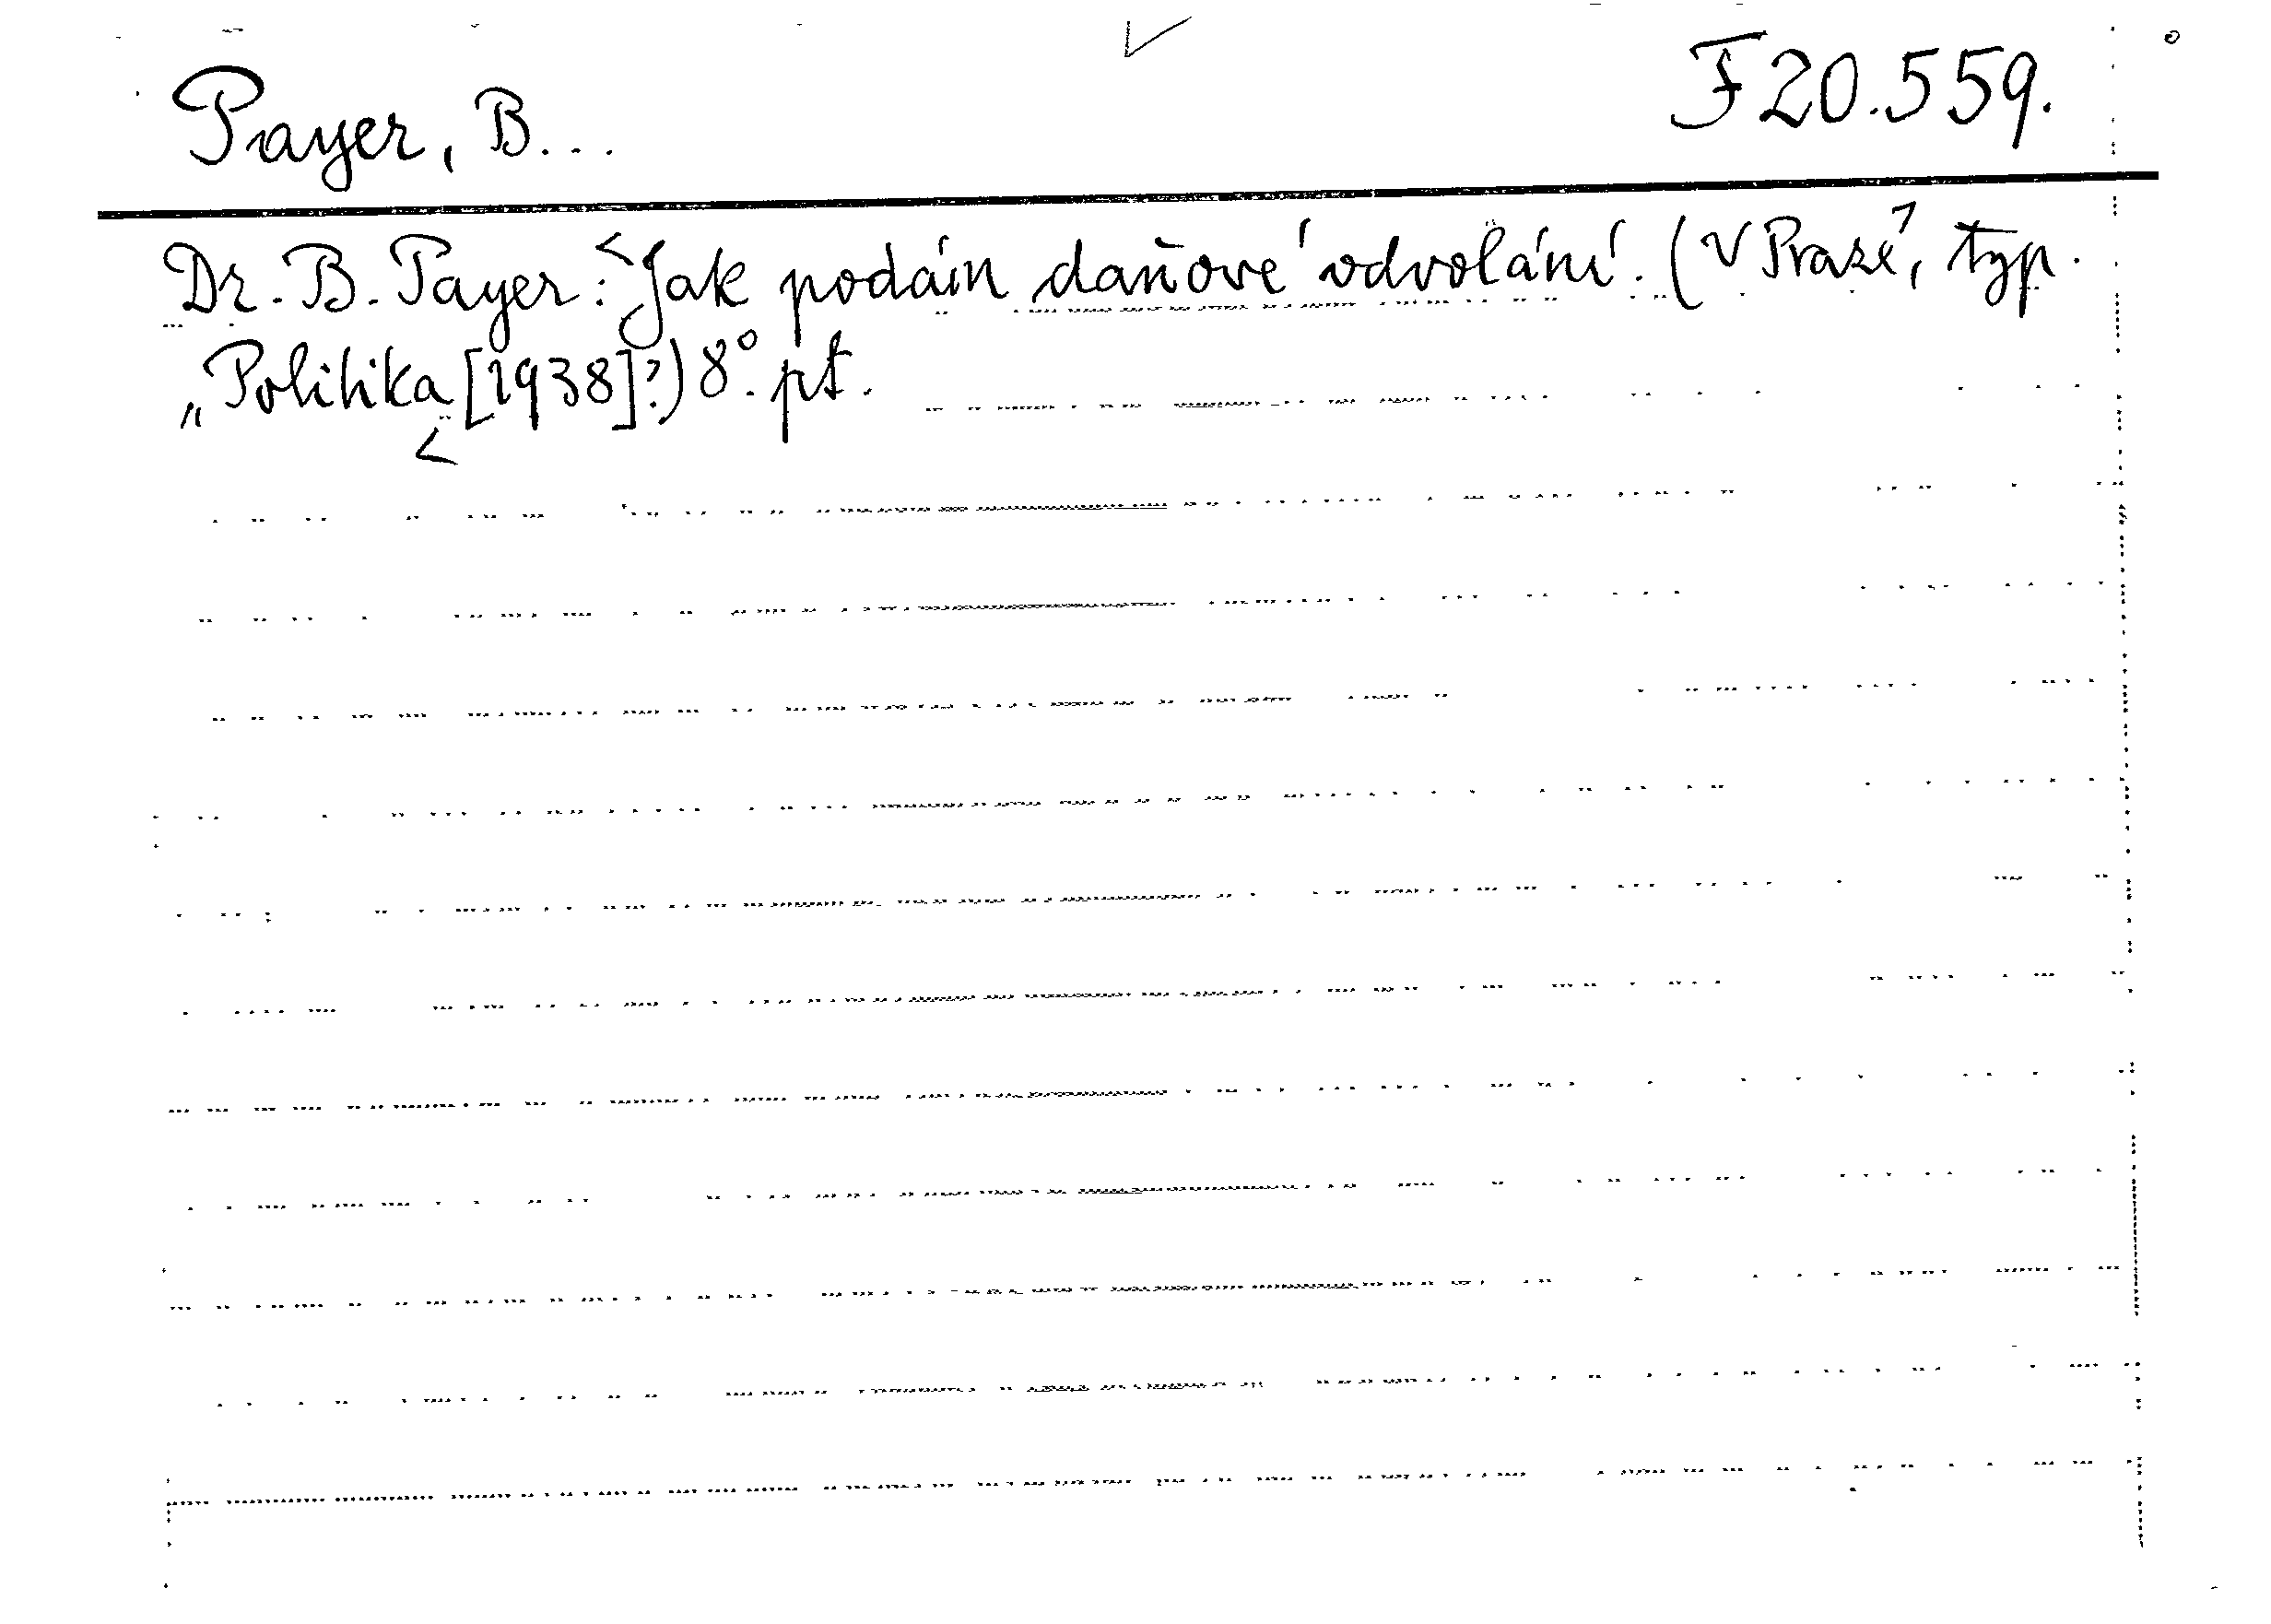 Payer, B... F 20.559.
Dr. B. Payer: Jak podám daňové odvolání. (V Praze, typ.
„Politika [1938]?) 8°. pt.